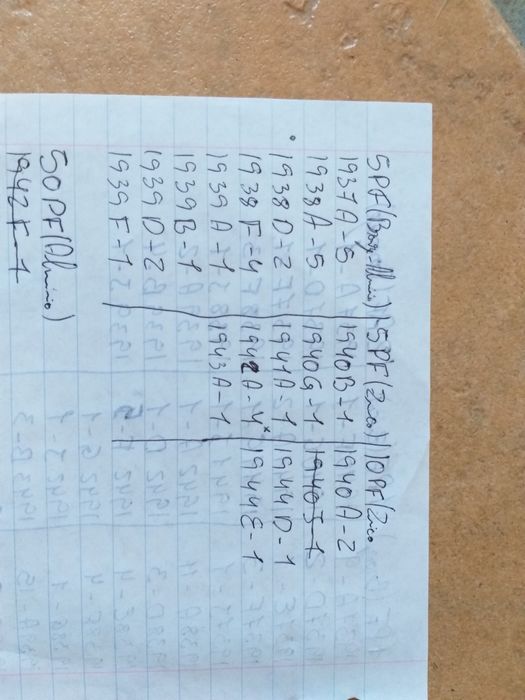 5PF(Bronz-Alumi) 5PF(Zinco) 10PF(Zinco
1937A-5 1940B-1 1940A-2
1938A-5 1940G-1 1940J-1
1938D-2 1941A-1 1944D-1
1938F-4 1942A-4* 1944E-1
1939A-1 1943A-1
1939B-1
1939D-2
1939F-1
50PF(Alumínio)
1942F-1